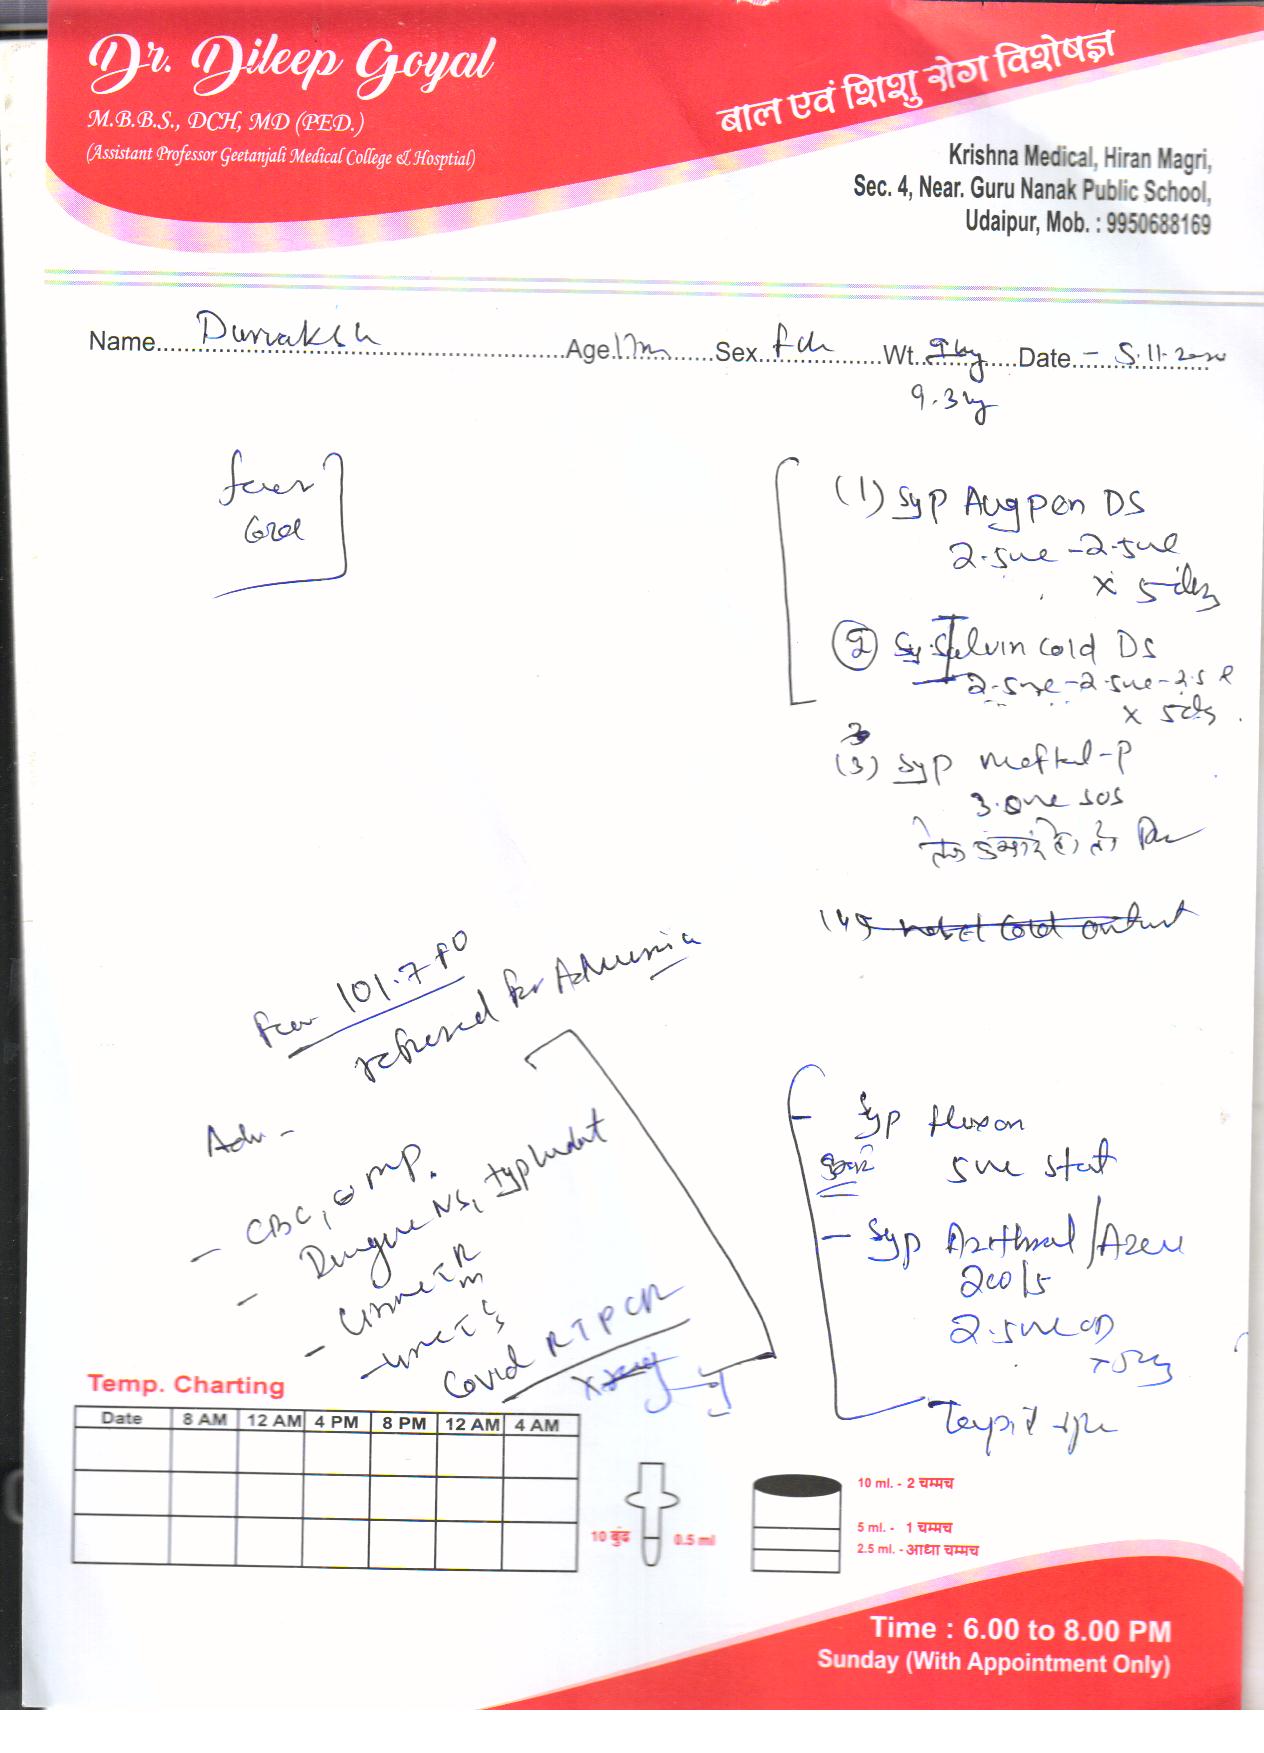 Dr. Dileep Goyal
M.B.B.S., DCH, MD (PED.)
(Assistant Professor Geetanjali Medical College & Hosptial)
बाल एवं शिशु रोग विशेषज्ञ
Krishna Medical, Hiran Magri,
Sec. 4, Near. Guru Nanak Public School,
Udaipur, Mob. : 9950688169
Name Age 17m Sex Wt. 9kg Date - 5.11.2020
9.3kg
fever
Cold
(1) Syp Augpen DS
2.5ml - 2.5ml
x 5 days
(2) Sy. Solvin cold DS
2.5ml - 2.5ml - 2.5
x 5ds
(3) Syp Meftal-P
3.0ml SOS
(4)
Fever 101.7 F
refused for Admission
Adv -
- CBC, MP.
- Dengue NS, typhidot
- Urine R
m
- Urine
Covid RTPCR
- Syp fluxon
5ml stat
- Syp Azithral / Azee
200/5
2.5ml OD
Temp. Charting
Date 8 AM 12 AM 4 PM 8 PM 12 AM 4 AM
10 बुंद 0.5 ml
10 ml. - 2 चम्मच
5 ml. - 1 चम्मच
2.5 ml. - आधा चम्मच
Time : 6.00 to 8.00 PM
Sunday (With Appointment Only)